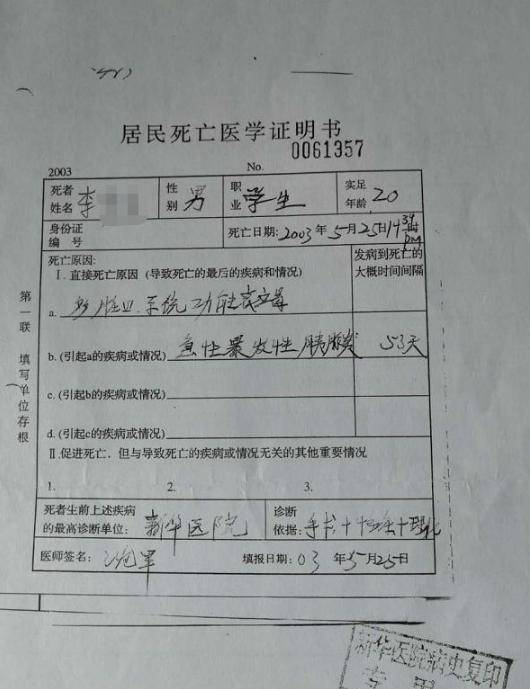 居民死亡医学证明书
2003 No. 0061357
死者姓名 李 性别 男 职业 学生 实足年龄 20
身份证编号 死亡日期: 2003年5月25日14时
死亡原因: 发病到死亡的大概时间间隔
I. 直接死亡原因 (导致死亡的最后的疾病和情况)
a. 多脏 系统功能衰
b. (引起a的疾病或情况) 急性暴发性胰腺炎 53天
c. (引起b的疾病或情况)
d. (引起c的疾病或情况)
II 促进死亡，但与导致死亡的疾病或情况无关的其他重要情况
1. 2. 3.
死者生前上述疾病的最高诊断单位: 新华医院 诊断依据: 手术+ +理化
医师签名: 填报日期: 03年5月25日
第一联 填写单位存根
新华医院病史复印
专用